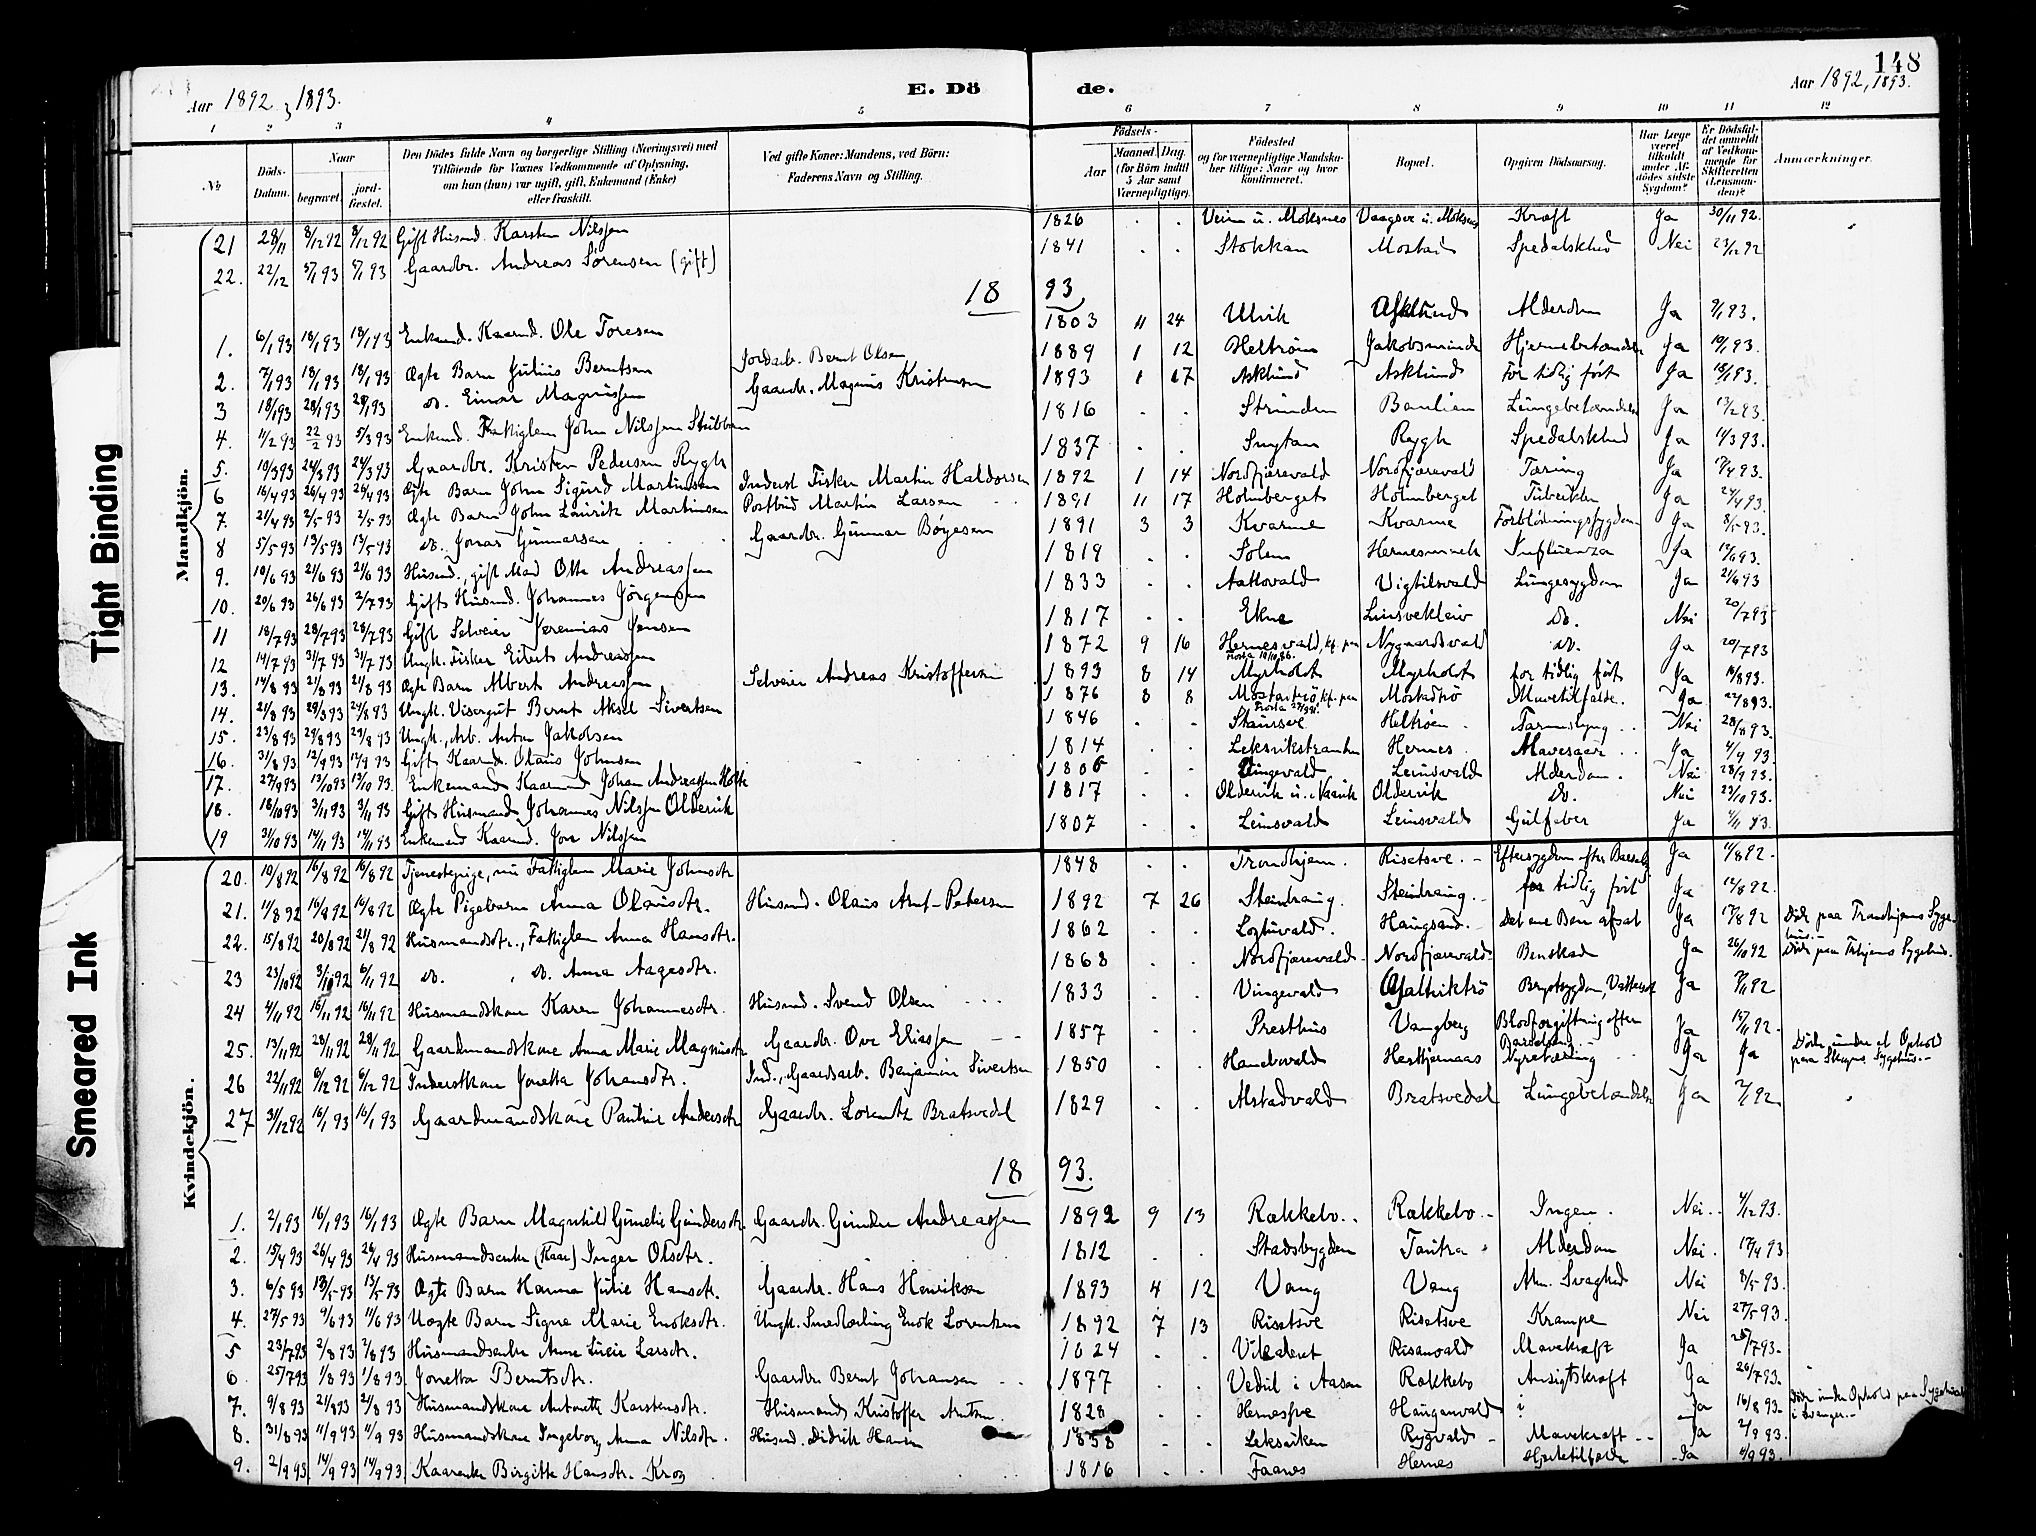 148
Aar 1892, 1893.
E. Döde.
Aar 1892, 1893.
1 2 3 4 5 6 7 8 9 10 11 12
No
Döds-Datum.
Naar
begravet.
jord-fæstet.
Den Dödes fulde Navn og borgerlige Stilling (Næringsvei) med
Tilföiende for Voxnes Vedkommende af Oplysning,
om han (hun) var ugift, gift, Enkemand (Enke)
eller fraskilt.
Ved gifte Koner: Mandens, ved Börn:
Faderens Navn og Stilling.
Födsels-
Aar
Maaned. Dag.
(for Börn indtil
5 Aar samt
Værnepligtige).
Födested
og for værnepligtige Mandska-
ber tillige: Naar og hvor
konfirmeret.
Bopæl.
Opgiven Dödsaarsag.
Har Læge
været
tilkaldt
under Af-
dödes sidste
Sygdom?
Er Dödsfal-
det anmeldt
af Vedkom-
mende for
Skifteretten
(Lensman-
den)?
Anmærkninger.
Mandkjön.
21 28/11 8/12 92 8/12 92 Gift Husmd. Karsten Nilssen 1826 . . Moksnes Kræft Ja 30/11 92.
22. 22/12 5/1 93 5/1 93 Gaardbr. Andreas Sörensen (gift) 1841 . . Stokkan Mostad Spedalskhed Nei 23/12 92
1893
1. 6/1 93 18/1 93 18/1 93 Enkemd. Kaarmd. Ole Toresen 1803 11 24 Ulvik Asklund Alderdom Ja 9/1 93.
2. 7/1 93 18/1 93 18/1 93 Ægte Barn Julius Berntsen Jordarb. Bernt Olsen 1889 1 12 Heltröen Jakobsminde Hjernebetændelse Ja 10/1 93.
3 18/1 93 28/1 93 28/1 93 do. Einar Magnussen Gaardbr. Magnus Kristensen 1893 1 17 Asklund Asklund For tidlig föt Ja 18/1 93.
4. 11/2 93 22/2 93 5/3 93 Enkemd. Fattiglem John Nilssen Stubban 1816 . . Strinden Baulien Lungebetændelse Ja 13/2 93.
5. 10/3 93 24/3 93 24/3 93 Gaardbr. Kristen Pedersen Rygh 1837 . . Rygh Spedalskhed Ja 11/3 93.
6 16/4 93 26/4 93 26/4 93 Ægte Barn John Sigurd Martinsen Inderst Fisker Martin Haldorsen 1892 1 14 Nordfjærevald Nordfjærevald Tæring Ja 17/4 93.
7. 21/4 93 2/5 93 2/5 93 Ægte Barn John Laurits Martinsen Postbud Martin Larsen 1891 11 17 Holmberget Holmberget Ja 24/4 93.
8 5/5 93 13/5 93 13/5 93 do. Jonas Gunnarsen Gaardbr. Gunnar Böyesen 1891 3 3 Kvarme Kvarme Forblödningssygdom Ja 8/5 93.
9. 10/6 93 21/6 93 21/6 93 Husmd., gift Mand Otte Andreassen 1819 . . Solem Influenza Ja 12/6 93.
10. 20/6 93 26/6 93 2/7 93 Gift Husmd. Johannes Jörgensen 1833 . . Vigtilsvald Lungesygdom Ja 21/6 93
11 18/7 93 28/7 93 28/7 93 Gift Selveier Jeremias Jensen 1817 . . Ekne Linsvekleiv do. Nei 20/7 93
12 19/7 93 31/7 93 31/7 93 Ungk. Fisker Eilert Andreassen 1872 9 16 Hernesvald, kf. paa Frosta 10/10 86. Nygaardsvald do. Ja 20/7 93
13. 14/8 93 21/8 93 21/8 93 Ægte Barn Albert Andreassen Selveier Andreas Kristoffersen 1893 8 14 Myrholt Myrholt for tidlig föt Ja 16/8 93.
14. 21/8 93 29/8 93 29/8 93 Ungk. Visergut Bernt Aksel Sivertsen 1876 8 8 Mostadtrö kf. paa Frosta Mostadtrö Mavetilfælde. Ja 22/8 93.
15. 23/8 93 29/8 93 29/8 93 Ungk., Arb. Anton Jakobsen 1846 . . Heltröen Nei 28/8 93.
16. 31/8 93 12/9 93 12/9 93 Gift Kaarmd. Olaus Johnsen 1814 . . Leksvikstranden Hernes Mavesaar Ja 4/9 93.
17. 27/9 93 13/10 93 13/10 93. Enkemand Kaarmand Johan Andreassen Holte 1806 . . Vingevald Leinsvald Alderdom. Nei 28/9 93.
18. 18/10 93 3/11 93 3/11 93 Gift Husmand Johannes Nilssen Oldervik 1817 . . Oldervik Oldervik do. Nei 23/10 93.
19 31/10 93 14/11 93 14/11 93 Enkemand Kaarmd. Jon Nilssen 1807 . . Leinsvald Leinsvald Gulfeber Ja 2/11 93.
Kvindekjön.
20. 10/8 92 16/8 92 16/8 92 Tjenestepige, nu Fattiglem Marie Johnsdtr 1848 . . Trondhjem. Risetsve. Eftersygdom efter Barselg. Ja 11/8 92.
21. 11/8 92 16/8 92 16/8 92 Ægte Pigebarn Anna Olausdtr. Husmd. Olaus Arnt Petersen 1892 7 26 Steindraug. Steindraug. for tidlig föt Ja 12/8 92.
22. 15/8 92 20/8 92 21/8 92 Husmandsdtr., Fattiglem Anna Hansdtr. 1862 . . Haugsand. det ene Ben afsat Ja 17/8 92 Döde paa Trondhjems Sygehus.
23 23/10 92 3/11 92 6/11 92 do. , do. Anna Aagesdtr. 1868 . . Nordfjærevald Nordfjærevald Benskade Ja 26/10 92 Döde paa Trhjems Sygehus.
24 4/11 92 16/11 92 16/11 92 Husmandskone Karen Johannesdtr. Husmd. Svend Olsen 1833 . . Vingevald Brystsygdom, Vattersot Ja 7/11 92
25. 13/11 92 28/11 92 28/11 92 Gaardmandskone Anna Marie Magnusdtr Gaardbr. Ove Eliassen 1857 . . Presthus Vangberg Blodforgiftning efter Barselseng Ja 15/11 92.
26 22/11 92 6/12 92 6/12 92 Inderstkone Jonetta Johansdtr. Ind., Gaardsarb. Benjamin Sivertsen 1850 . . Nyretæring Ja Ja Döde under et Ophold paa Skogns Sygehus.
27 31/12 92 16/1 93 16/1 93 Gaardmandskone Pauline Andersdtr Gaardbr. Lorentz Bratsvedel 1829 . . Alstadvald Bratsvedel Lungebetændelse Ja 7/1 92
1893.
1. 2/1 93 16/1 93 16/1 93 Ægte Barn Magnhild Gunelie Gundersdtr. Gaardbr. Gunder Andreassen 1892 9 13 Rakkebo. Rakkebo. Ingen. Nei. 4/12 93.
2. 15/4 93 26/4 93 26/4 93 Husmandsenke (Kaar) Inger Olsdtr. 1812 . . Stadsbygden Tautra Alderdom Nei. 17/4 93
3. 6/5 93 13/5 93 13/5 93 Ægte Barn Hanna Julie Hansdtr. Gaardbr. Hans Henriksen 1893 4 12 Vang Vang Alm. Svaghed Nei 8/5 93.
4. 27/5 93 9/6 93 11/6 93 Uægte Barn Signe Marie Enoksdtr. Ungk. Smedlærling Enok Lorentsen 1892 7 13 Risetsve Risetsve Krampe Nei 27/5 93.
5 23/7 93 2/8 93 2/8 93 Husmandsenke Anne Lucie Larsdtr. 1824 . . Risanvald Mavekræft Ja 25/7 93.
6. 25/7 93 1/8 93 1/8 93 Jonetta Berntsdtr. Gaardbr. Bernt Johansen 1877 . . Vedul i Aasen Rakkebo Ansigtskræft Ja 26/7 93.
7. 9/8 93 21/8 93 21/8 93 Husmandskone Antonette Karstensdtr. Husmand Kristoffer Arntsen 1828 . . Haugenvald Ja 16/8 93. Döde under Ophold paa Sygehuset i Levanger.
8. 31/8 93 11/9 93 11/9 93 Husmandskone Ingeborg Anna Nilsdtr. Husmd. Didrik Hansen 1858 . . Leksviken Rygvald Mavekræft Ja 2/9 93.
9. 2/9 93. 14/9 93 14/9 93 Kaarenke Birgitte Hansdtr. Krog 1816 . . Faanes Hernes Hjertetilfælde Ja 4/9 93.
Tight Binding
Smeared Ink